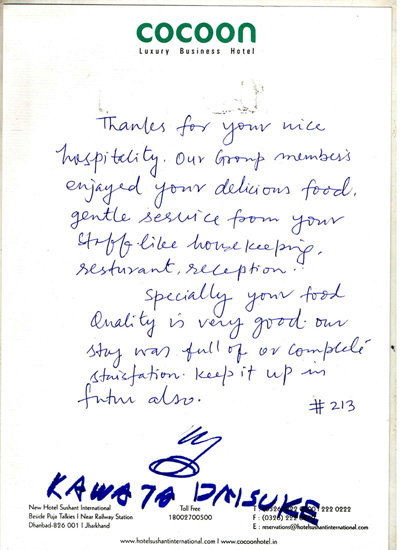 cocoon
Luxury Business Hotel
Thanks for your nice
hospitality. Our Group members
enjoyed your delicious food,
gentle service from your
staff like housekeeping,
resturant, reception.
Specially your food
Quality is very good. our
stay was full of or complete
staisfation. keep it up in
futur also.
#213
KAWATA DAISUKE
New Hotel Sushant International
Beside Puja Talkies I Near Railway Station
Dhanbad-826 001 I Jharkhand
Toll Free
18002700500
T : (0326) 222 0222
F : (0326) 222
E : reservations@hotelsushantinternational.com
www.hotelsushantinternational.com I www.cocoonhotel.in